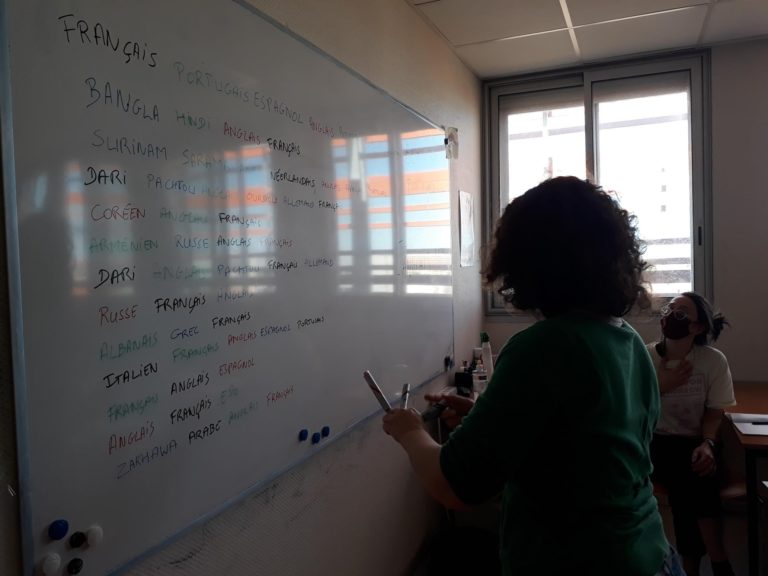 FRANÇAIS PORTUGAIS ESPAGNOL ANGLAIS
BANGLA HINDI ANGLAIS FRANÇAIS
SURINAM NÉERLANDAIS
DARI PACHTOU OURDOU ALLEMAND FRANÇ
CORÉEN ANGLAIS FRANÇAIS
ARMÉNIEN RUSSE ANGLAIS FRANÇAIS
DARI ANGLAIS PACHTOU FRANÇAIS ALLEMAND
RUSSE FRANÇAIS ANGLAIS
ALBANAIS GREC FRANÇAIS
ITALIEN FRANÇAIS ANGLAIS ESPAGNOL PORTUGAIS
FRANÇAIS ANGLAIS ESPAGNOL
ANGLAIS FRANÇAIS
ZARHAWA ARABE ANGLAIS FRANÇAIS